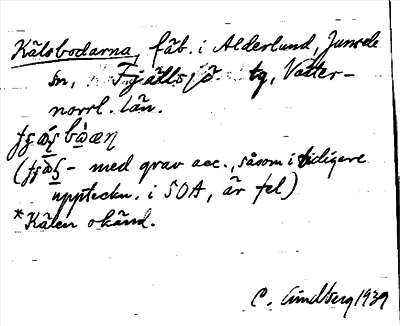 Kälsbodarna, fäb. i Alderlund, Junsele
sn, Fjällsjö tg, Väster-
norrl. län.
bæn
( – med grav acc., såsom i tidigare
uppteckn. i SOA, är fel)
*Kälen okänd.
C. Lindberg 1939